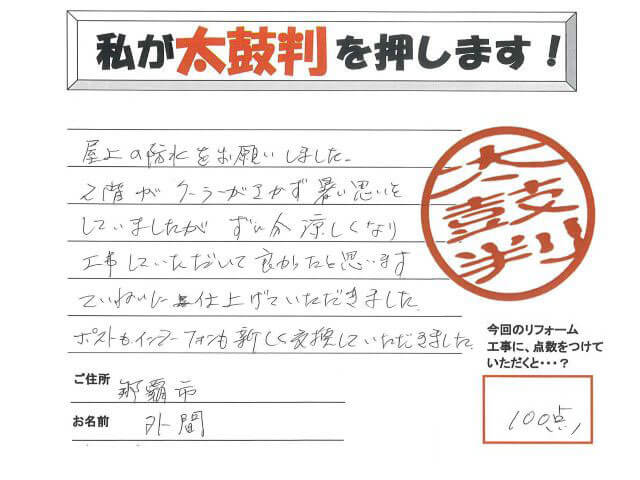 私が太鼓判を押します！
屋上の防水をお願いしました。
2階がクーラーがきかず暑い思いを
していましたが ずい分涼しくなり
工事していただいて良かったと思います
ていねいに仕上げていただきました
ポストもインターフォンも新しく交換していただきました
太鼓判
今回のリフォーム
工事に、点数をつけて
いただくと・・・？
100点!
ご住所 那覇市
お名前 外間